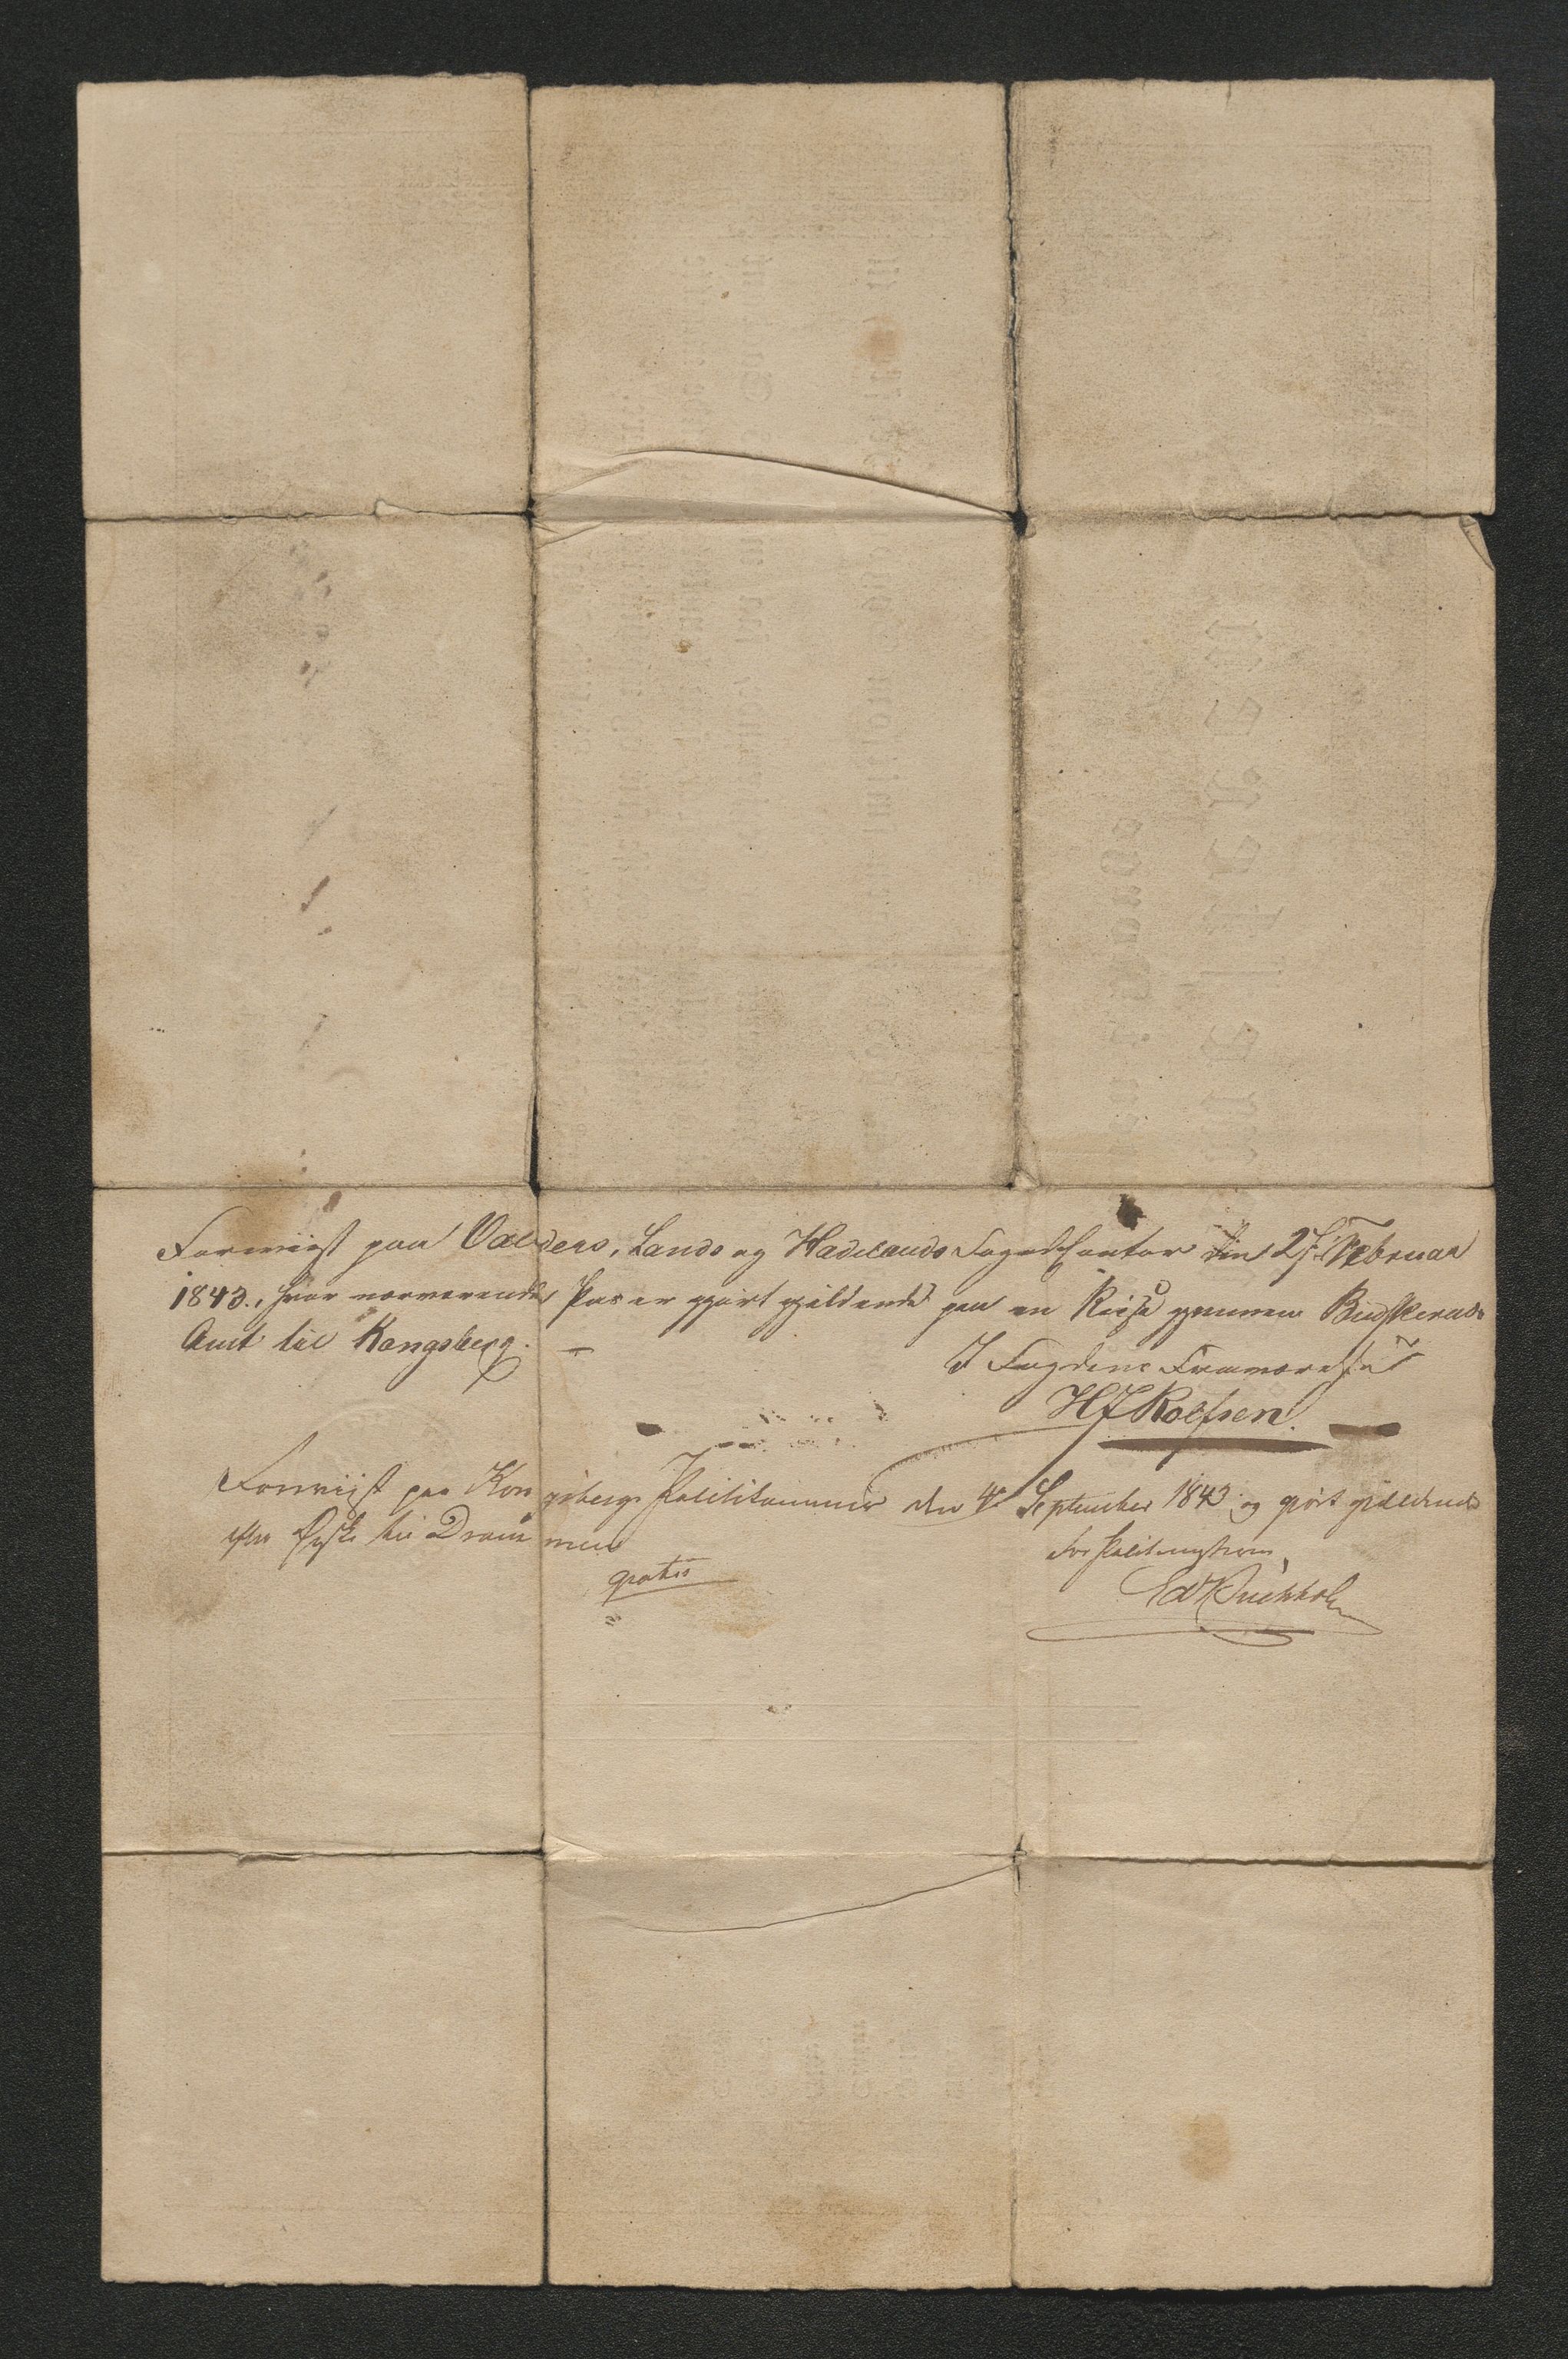 Foreviist paa Valders, Lands og Hadelands Fogedcontor den 27de Februar
1843., hvor nærværende Pas er gjort gjeldende paa en Reise gjennem Buskeruds
Amt til Kongsberg. –
I Fogdens Fraværelse
HJRolfsen.
Foreviist paa Kongsbergs Politikammer den 4de September 1843 og gjort gjeldende
efter Ønske til Drammen
For Politimesteren,
gratis
Ed Buchholz